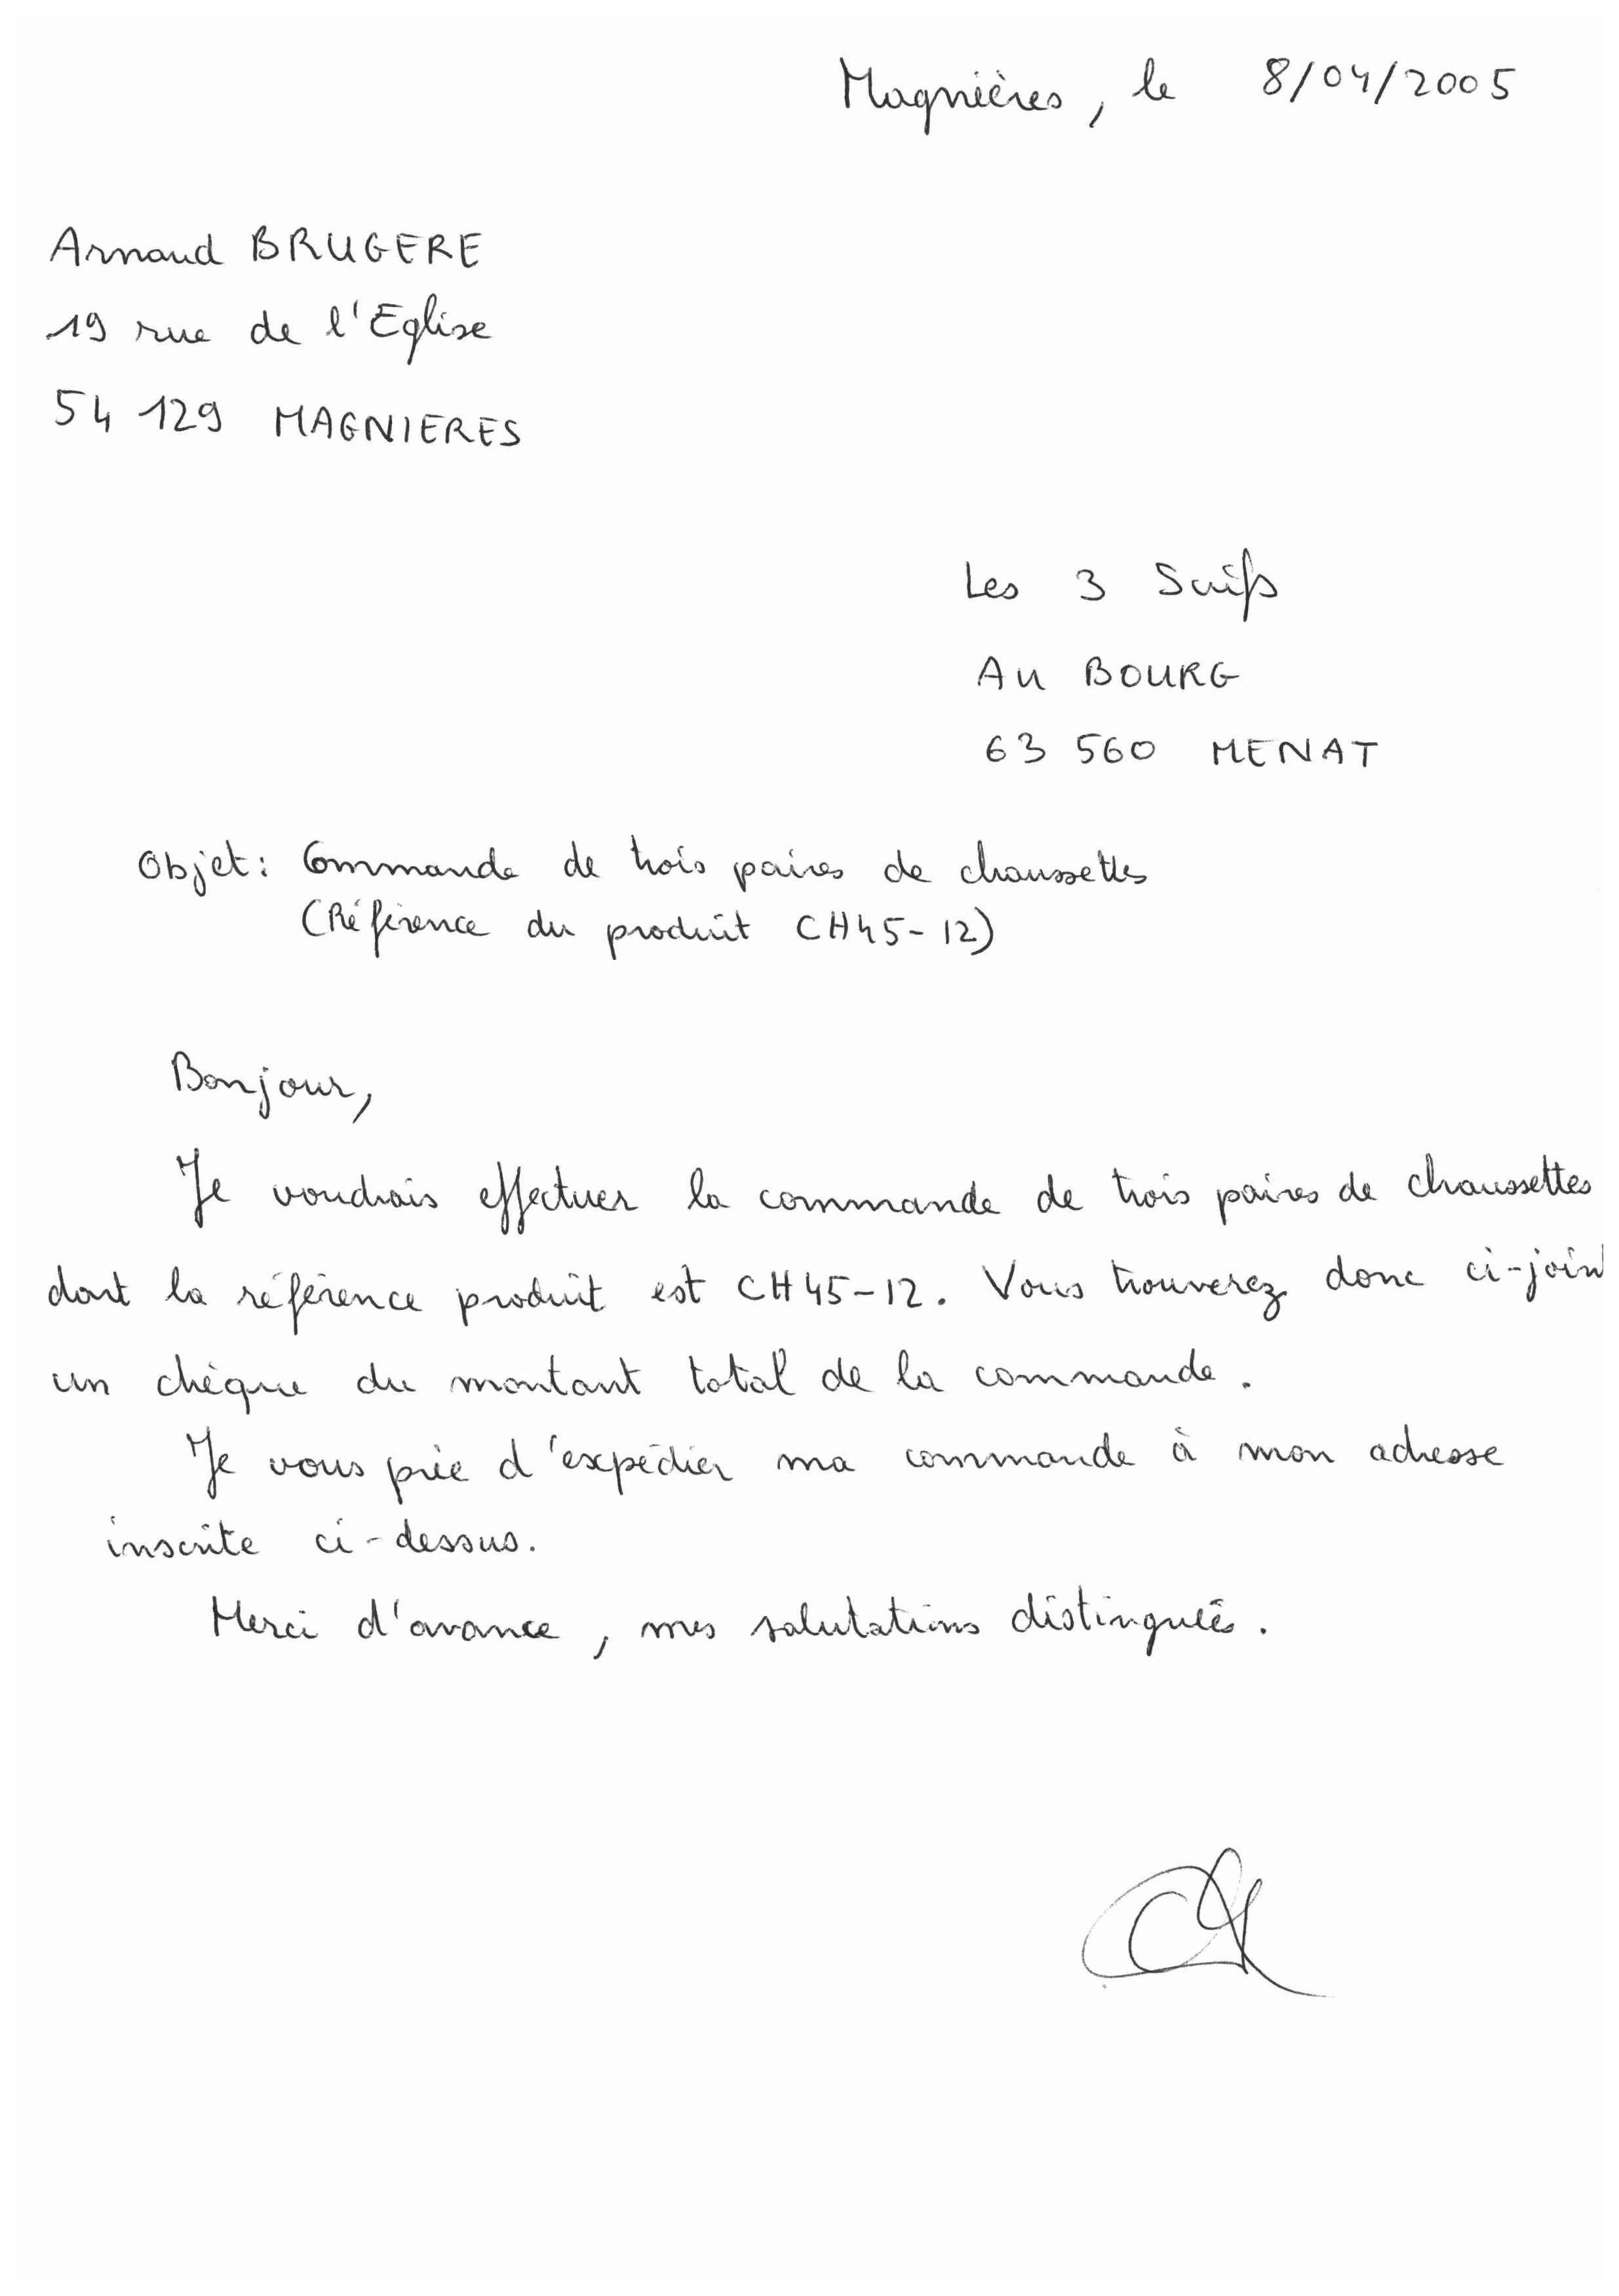 Magnières, le 8/04/2005
Arnaud BRUGERE
19 rue de l'Eglise
54 129 MAGNIERES
Les 3 Suifs
AU BOURG
63 560 MENAT
Objet: Commande de trois paires de chaussettes
(Référence du produit CH45-12)
Bonjour,
Je voudrais effectuer la commande de trois paires de chaussettes
dont la référence produit est CH45-12. Vous trouverez donc ci-join
un chèque du montant total de la commande.
Je vous prie d'expédier ma commande à mon adresse
inscrite ci-dessus.
Merci d'avance, mes salutations distinguées.